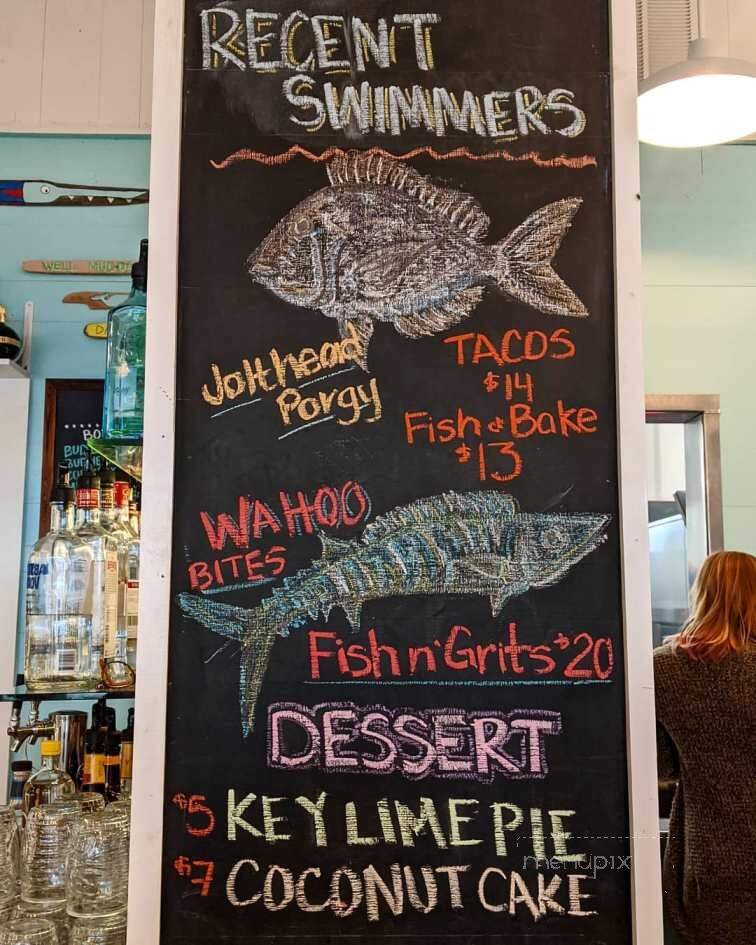 RECENT
SWIMMERS
Jolthead
Porgy
TACOS
$14
Fish & Bake
$13
WAHOO
BITES
Fish n' Grits $20
DESSERT
$5 KEY LIME PIE
$7 COCONUT CAKE
WELL
menupix